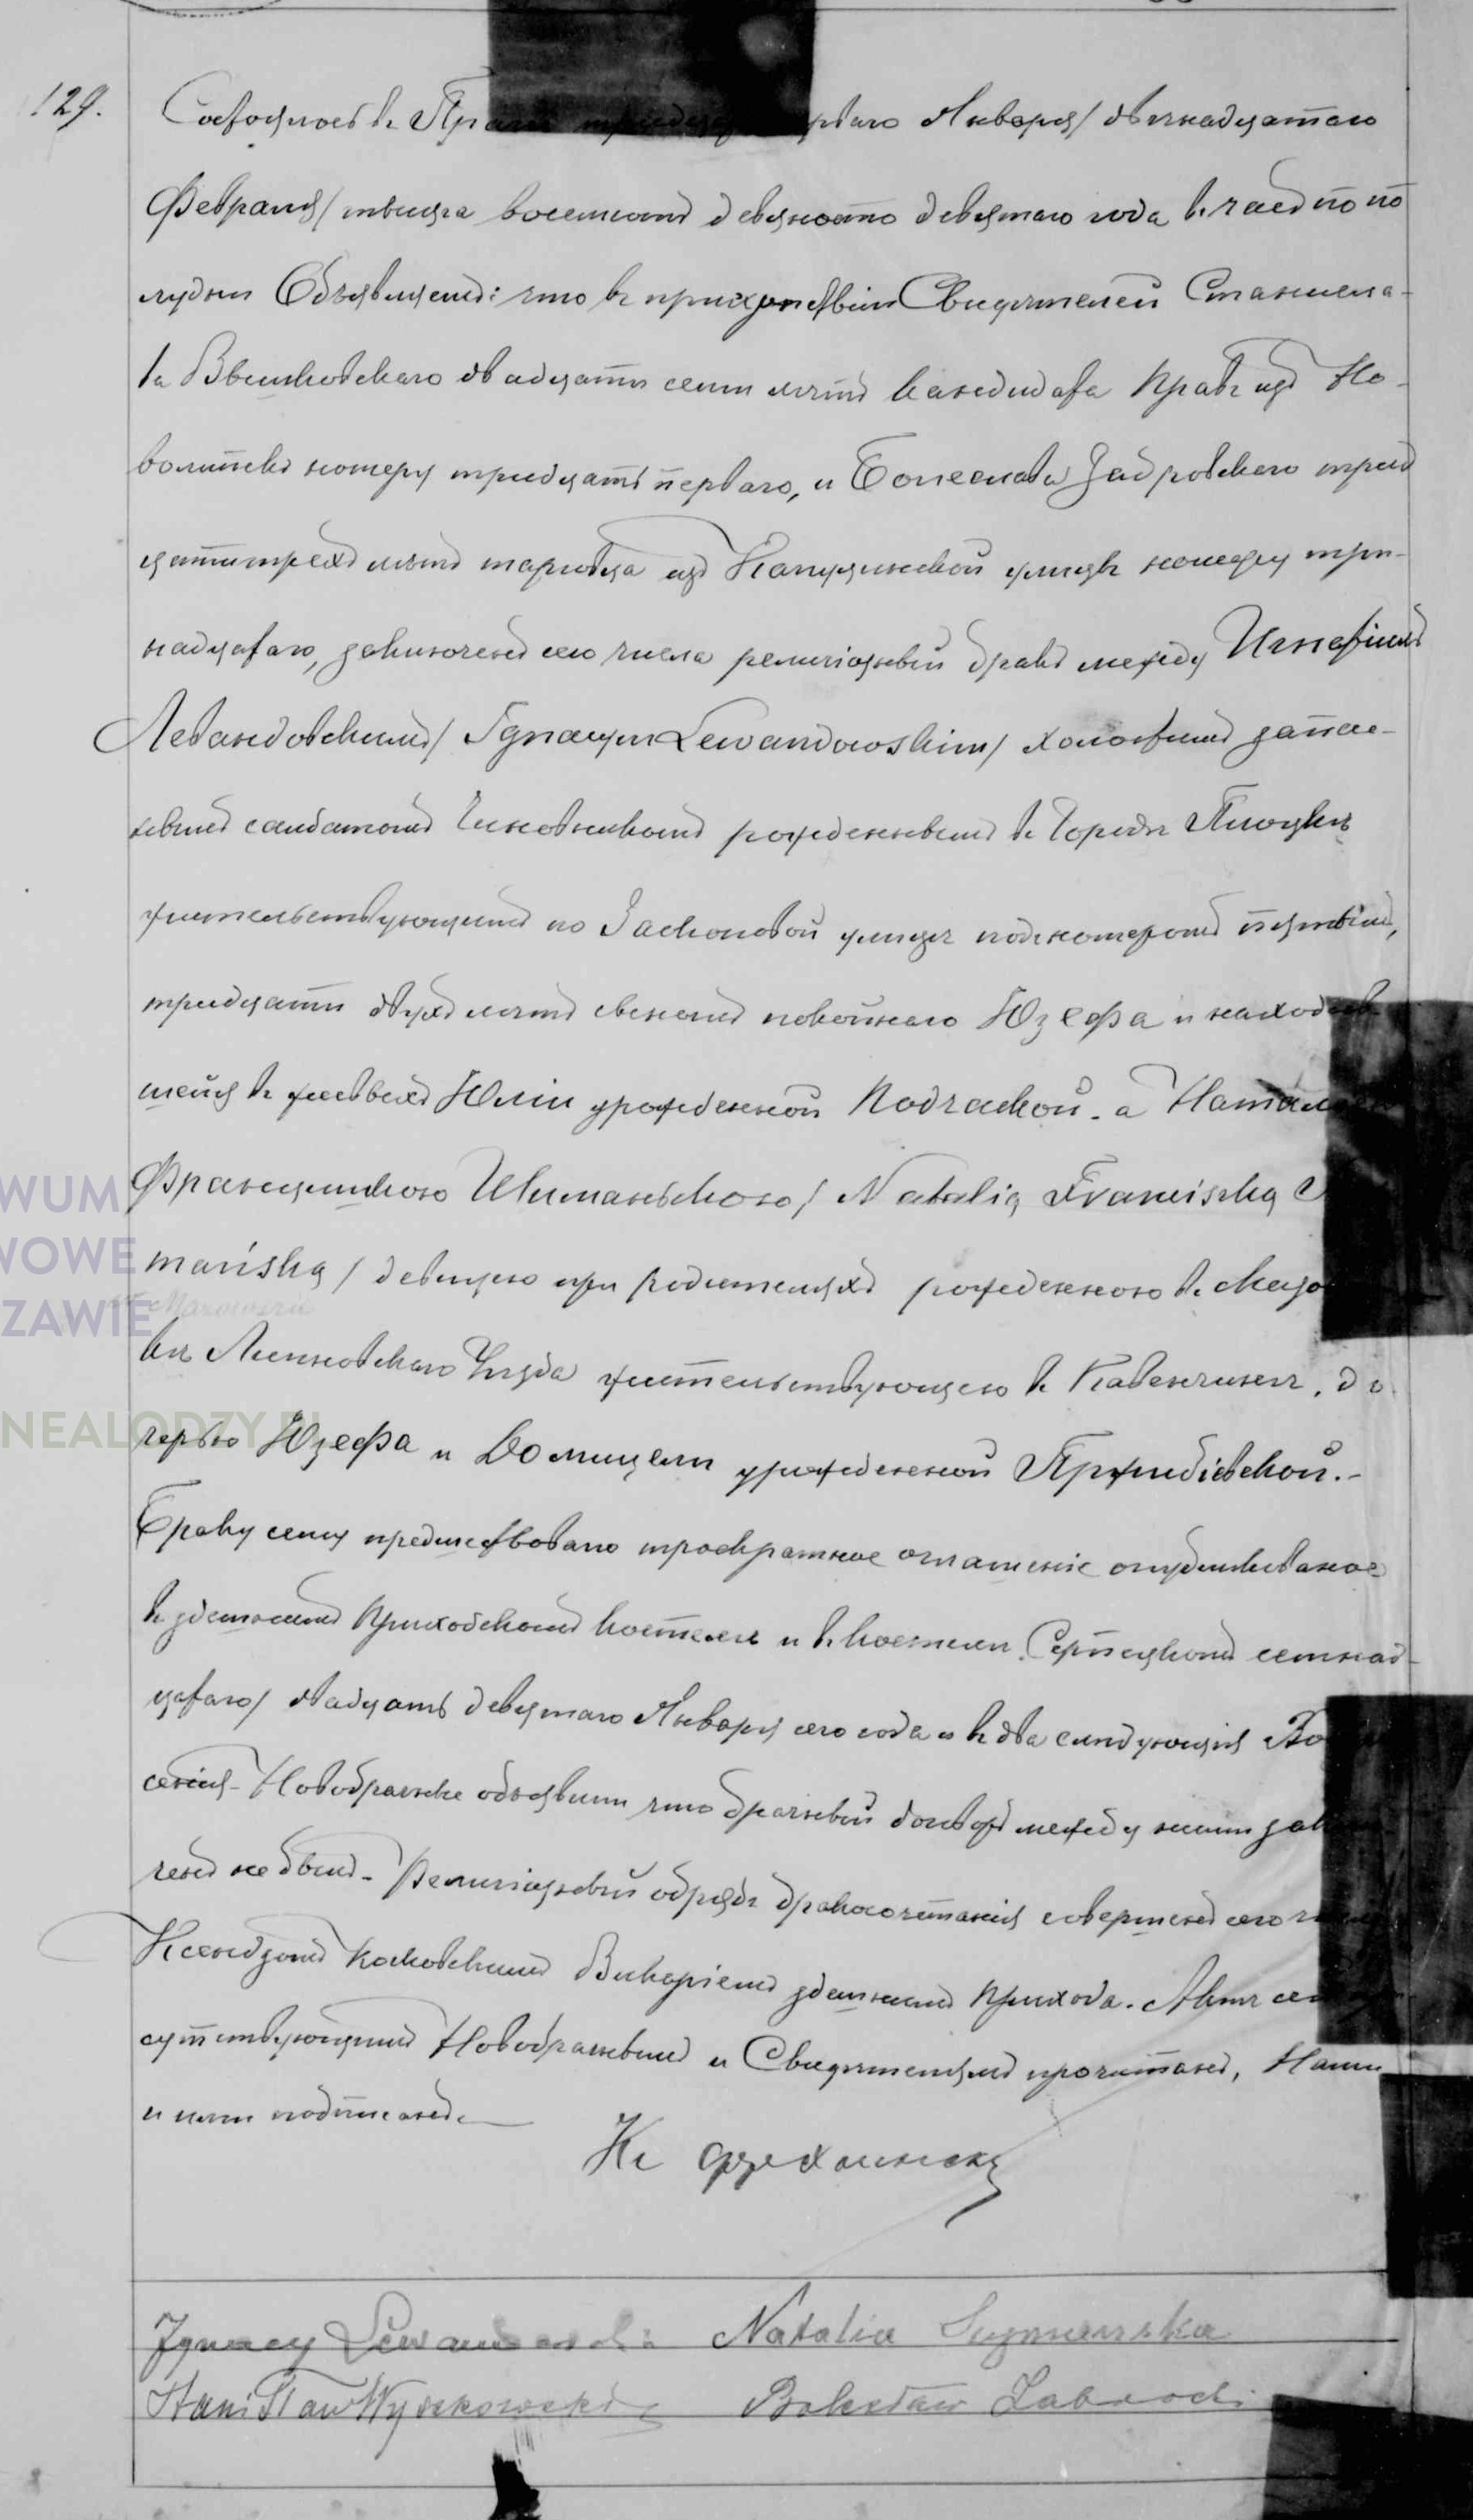 129.
Состоялось въ Праге тридцать перваго Января/двенадцатаго
Февраля/тысяча восемьсотъ девяносто девятаго года въ часъ по по
лудни Объявляемъ: что въ присутствіи Свидѣтелей Станисла-
ва Вышковскаго двадцати семи лѣтъ кандидата правъ изъ Но-
волипекъ номеру тридцать перваго, и Болеслава Забровскаго трид
цати трехъ лѣтъ торговца изъ Капуцинской улицы номеру три-
надцатаго, заключенъ сего числа религіозный бракъ между Игнатіемъ
Левандовскимъ/Ignacym Lewandowskim/холостымъ запас-
нымъ солдатомъ Чиновникомъ рожденнымъ въ Городѣ Плоцкѣ
жительствующимъ по Заокоповой улицѣ подъ номеромъ пятымъ,
тридцати двухъ лѣтъ сыномъ покойнаго Юзефа и находя
щейся въ живыхъ Юліи урожденной Подчаской. а Наталіею
Францишкою Шиманьскою/Natalią Franciszką
mańską/девицею при родителяхъ рожденною въ Мазо
вѣ Липновскаго Уѣзда жительствующею въ Кавенчинѣ, до
черью Юзефа и Домицели урожденной Пржибівской.-
Браку сему предшествовало троекратное оглашеніе опубликованное
въ здешнемъ приходскомъ костелѣ и въ костели Серпецкомъ семнад-
цатаго/двадцать девятаго Января сего года и въ два слѣдующія
сенія- Новобрачные объявили что брачный договоръ между ними
ченъ не былъ- Религіозный обрядъ бракосочетанія совершенъ сего
Ксендзомъ Косковскимъ Викаріемъ здешнемъ прихода. Актъ сей
сутствующимъ Новобрачнымъ и Свидѣтелямъ прочитанъ, Нами
и ними подписанъ.
Кс
Ignacy Lewandowski Natalia Szymańska
Stanisław Wyszkowski Bolesław Zabrocki
WUM
WOWE
ZAWIE
NEALODZY.PL